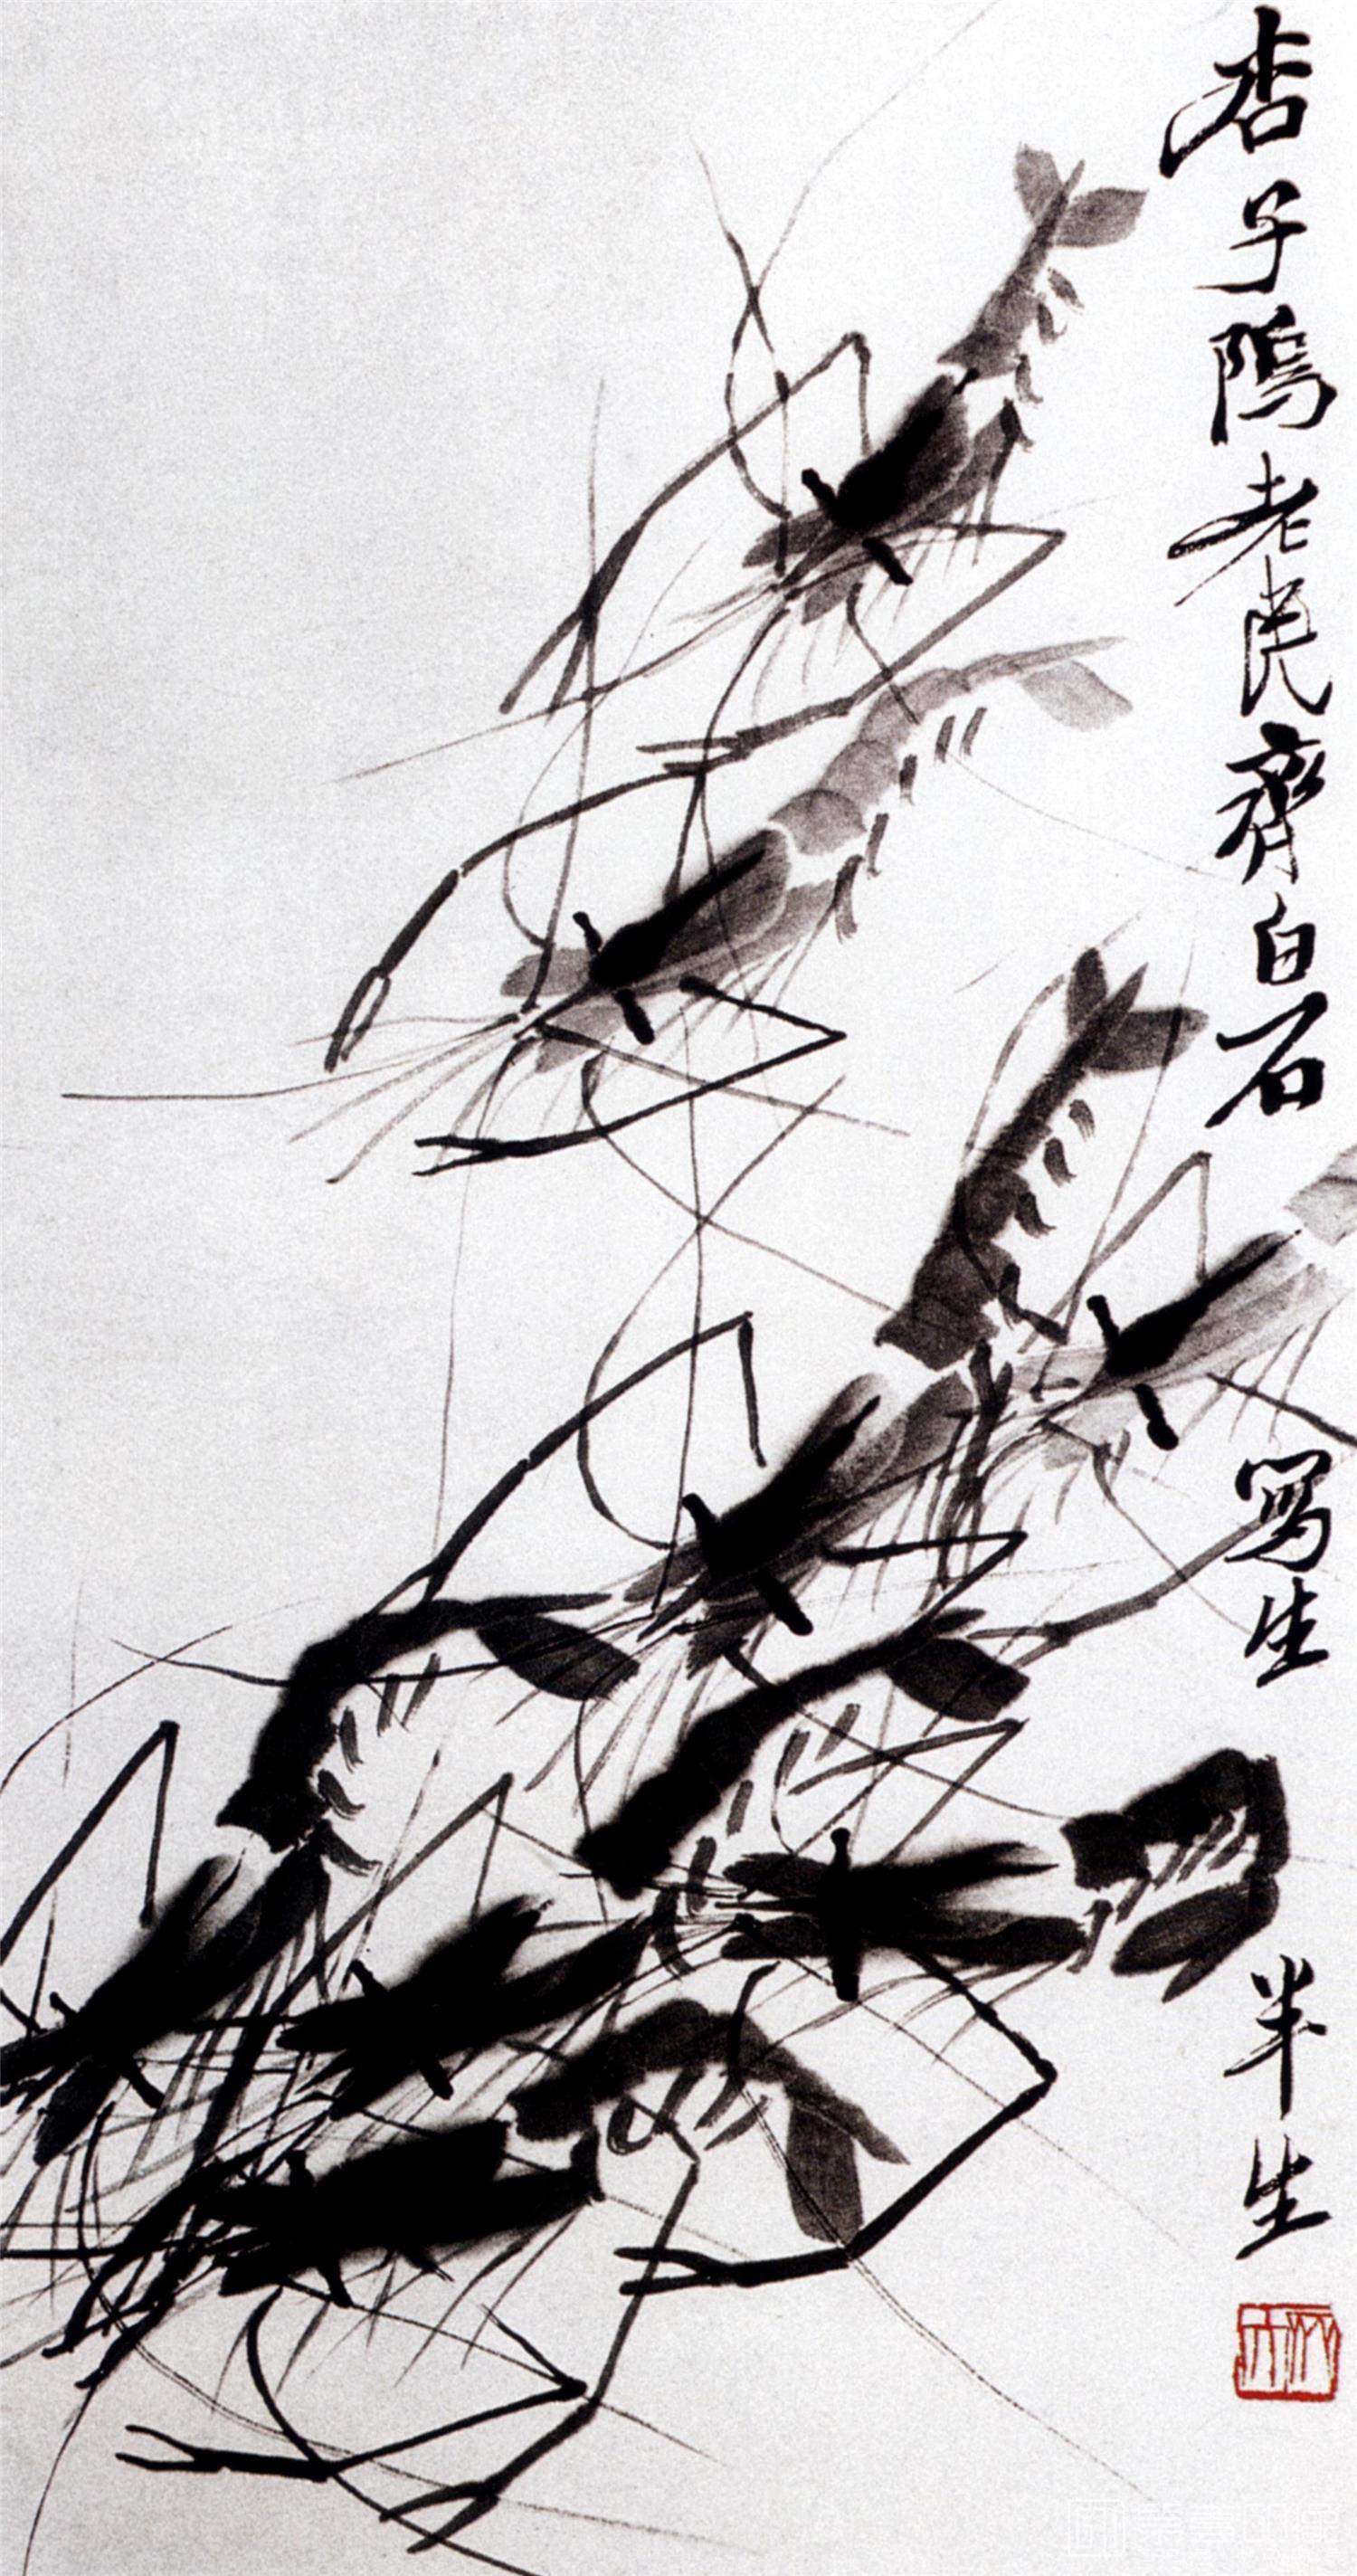 杏子隖老民齊白石寫生半生